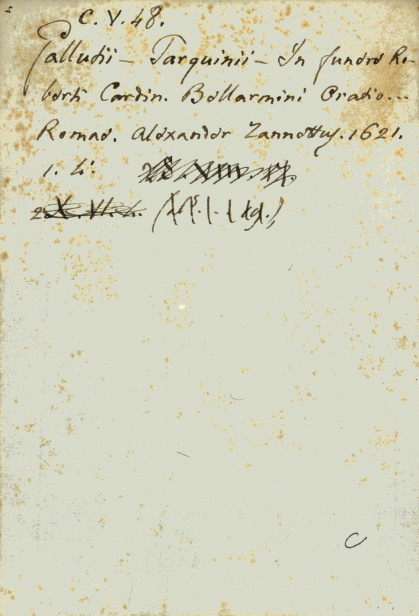 C. V. 48.
Galludii - Tarquinii - In funere Ro-
berti Cardin. Bellarmini Oratio...
Romae. Alexander Zannettus. 1621.
1. 4:
C